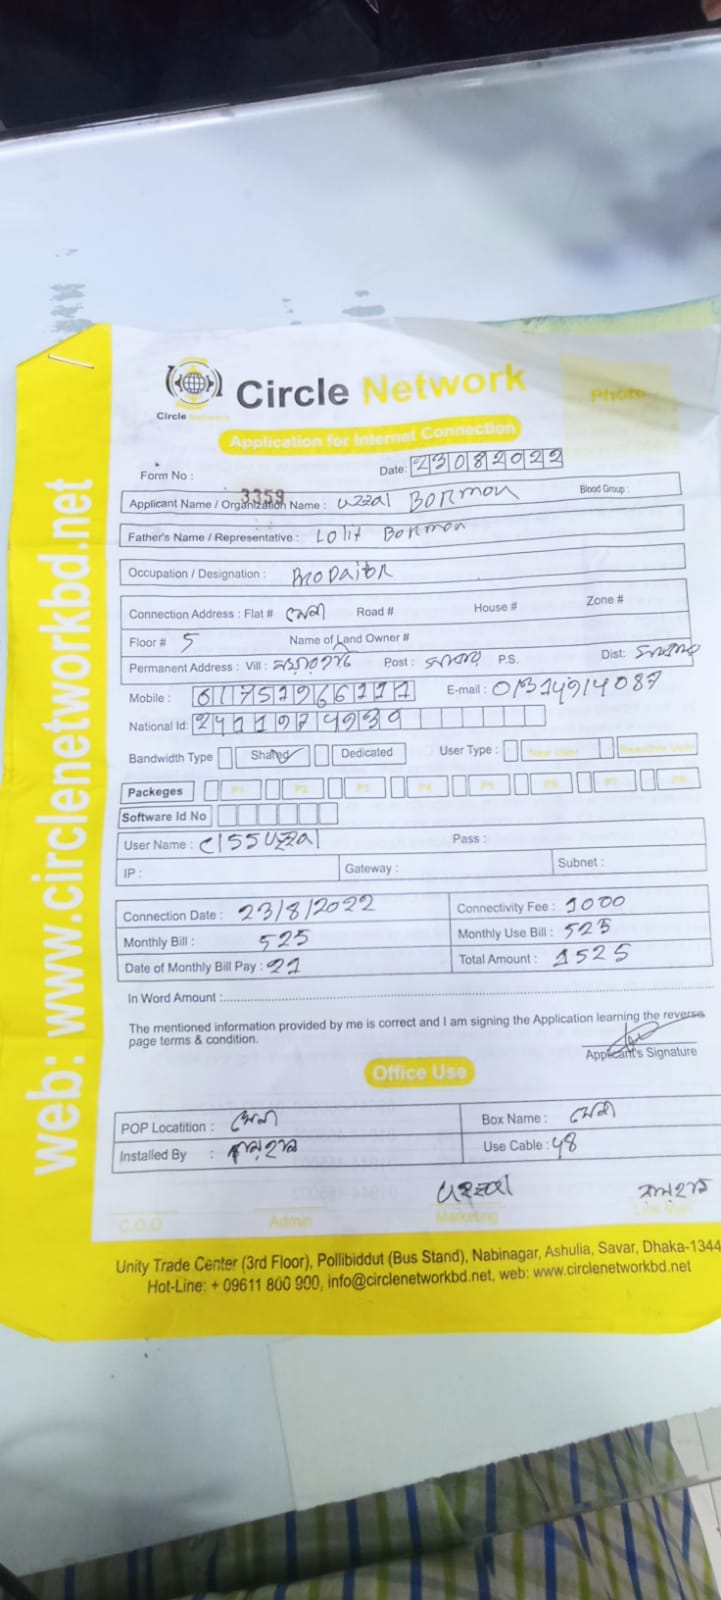 web: www.circlenetworkbd.net
Circle Network
Circle Network
Photo
Application for Internet Connection
Form No : 3359
Date: 23082022
Applicant Name / Organization Name : uzzal BORmon Blood Group :
Father's Name / Representative : Lolit Bormon
Occupation / Designation : PROPaitOR
Connection Address : Flat # Road # House # Zone #
Floor # 5 Name of Land Owner #
Permanent Address : Vill : Post : P.S. Dist:
Mobile : E-mail : 01314914087
National Id:
Bandwidth Type Shared Dedicated User Type : New User Reactive User
Packeges P1 P2 P3 P4 P5 P6 P7 P8
Software Id No
User Name : Pass :
IP : Gateway : Subnet :
Connection Date : 23/8/2022 Connectivity Fee : 1000
Monthly Bill : 525 Monthly Use Bill : 525
Date of Monthly Bill Pay : 21 Total Amount : 1525
In Word Amount :
The mentioned information provided by me is correct and I am signing the Application learning the reverse
page terms & condition.
Applicant's Signature
Office Use
POP Locatition : Box Name :
Installed By : Use Cable : 48
C.O.O Admin Marketing Line Man
Unity Trade Center (3rd Floor), Pollibiddut (Bus Stand), Nabinagar, Ashulia, Savar, Dhaka-1344
Hot-Line: + 09611 800 900, info@circlenetworkbd.net, web: www.circlenetworkbd.net